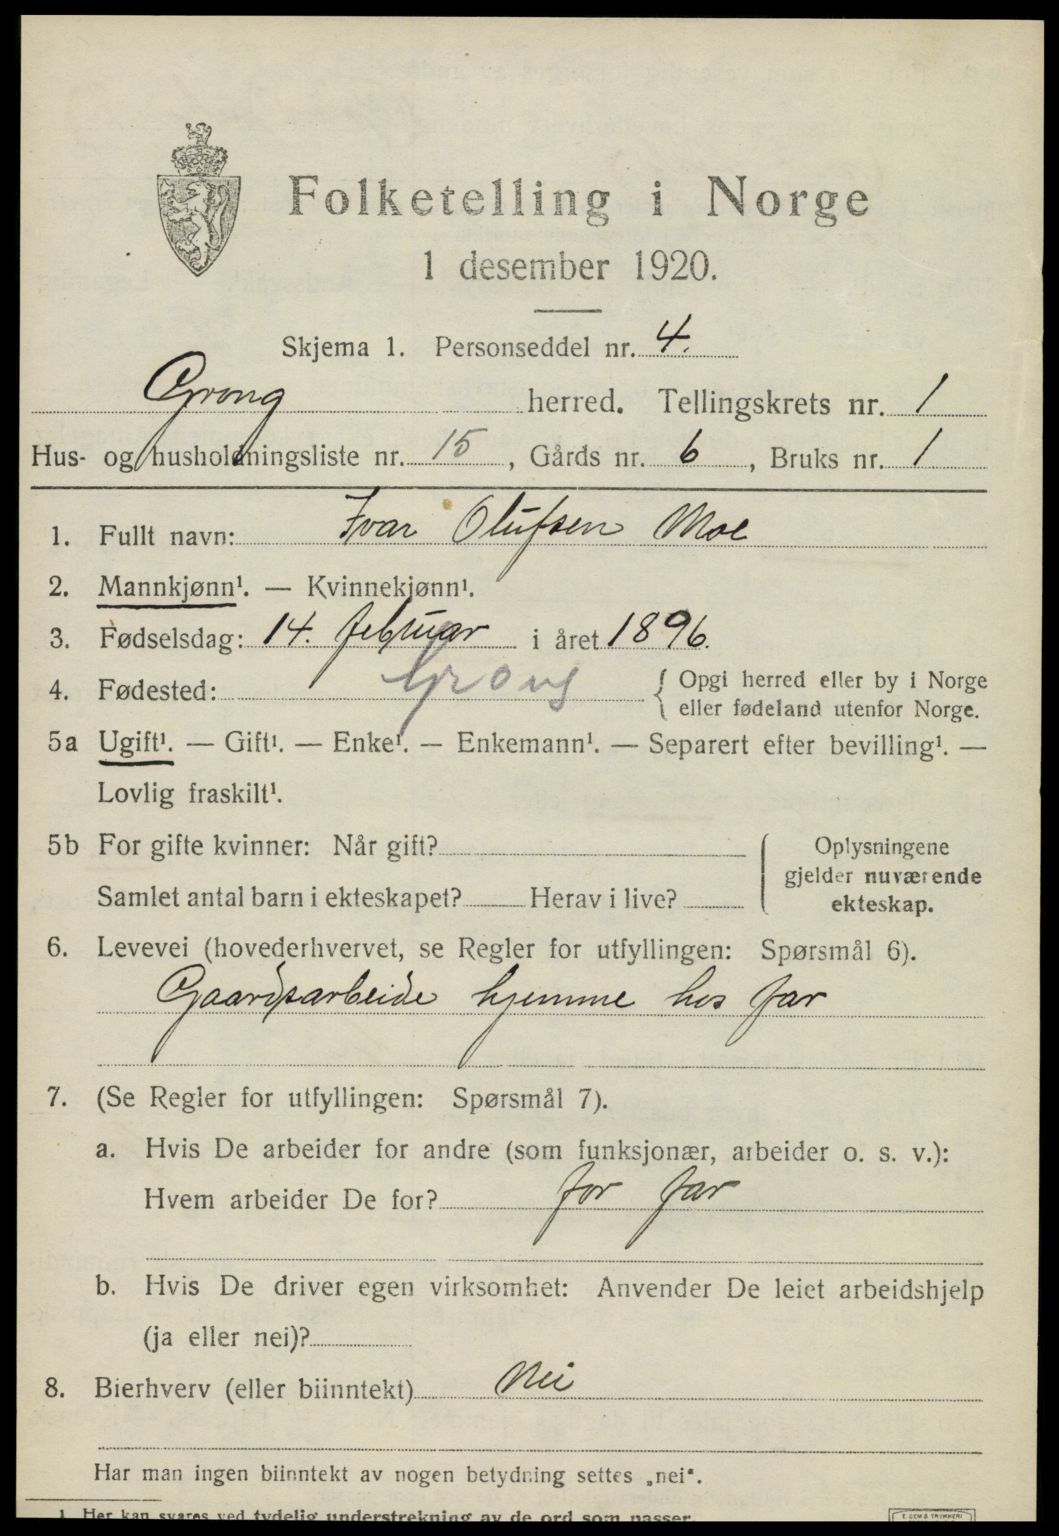 Folketelling i Norge
1 desember 1920.
Skjema 1. Personseddel nr. 4.
Grong herred. Tellingskrets nr. 1
Hus- og husholdningsliste nr. 15, Gårds nr. 6, Bruks nr. 1
1. Fullt navn: Ivar Olufsen Moe
2. Mannkjønn¹. — Kvinnekjønn¹.
3. Fødselsdag: 14. februar i året 1896.
4. Fødested: Grong { Opgi herred eller by i Norge
eller fødeland utenfor Norge.
5a Ugift¹. — Gift¹. — Enke¹. — Enkemann¹. — Separert efter bevilling¹. —
Lovlig fraskilt¹.
5b For gifte kvinner: Når gift?
Samlet antal barn i ekteskapet? Herav i live?
{ Oplysningene
gjelder nuværende
ekteskap.
6. Levevei (hovederhvervet, se Regler for utfyllingen: Spørsmål 6).
Gaardsarbeide hjemme hos far
7. (Se Regler for utfyllingen: Spørsmål 7).
a. Hvis De arbeider for andre (som funksjonær, arbeider o. s. v.):
Hvem arbeider De for? for far
b. Hvis De driver egen virksomhet: Anvender De leiet arbeidshjelp
(ja eller nei)?
8. Bierhverv (eller biinntekt) Nei
Har man ingen biinntekt av nogen betydning settes „nei“.
1. Her kan svares ved tydelig understrekning av de ord som passer.